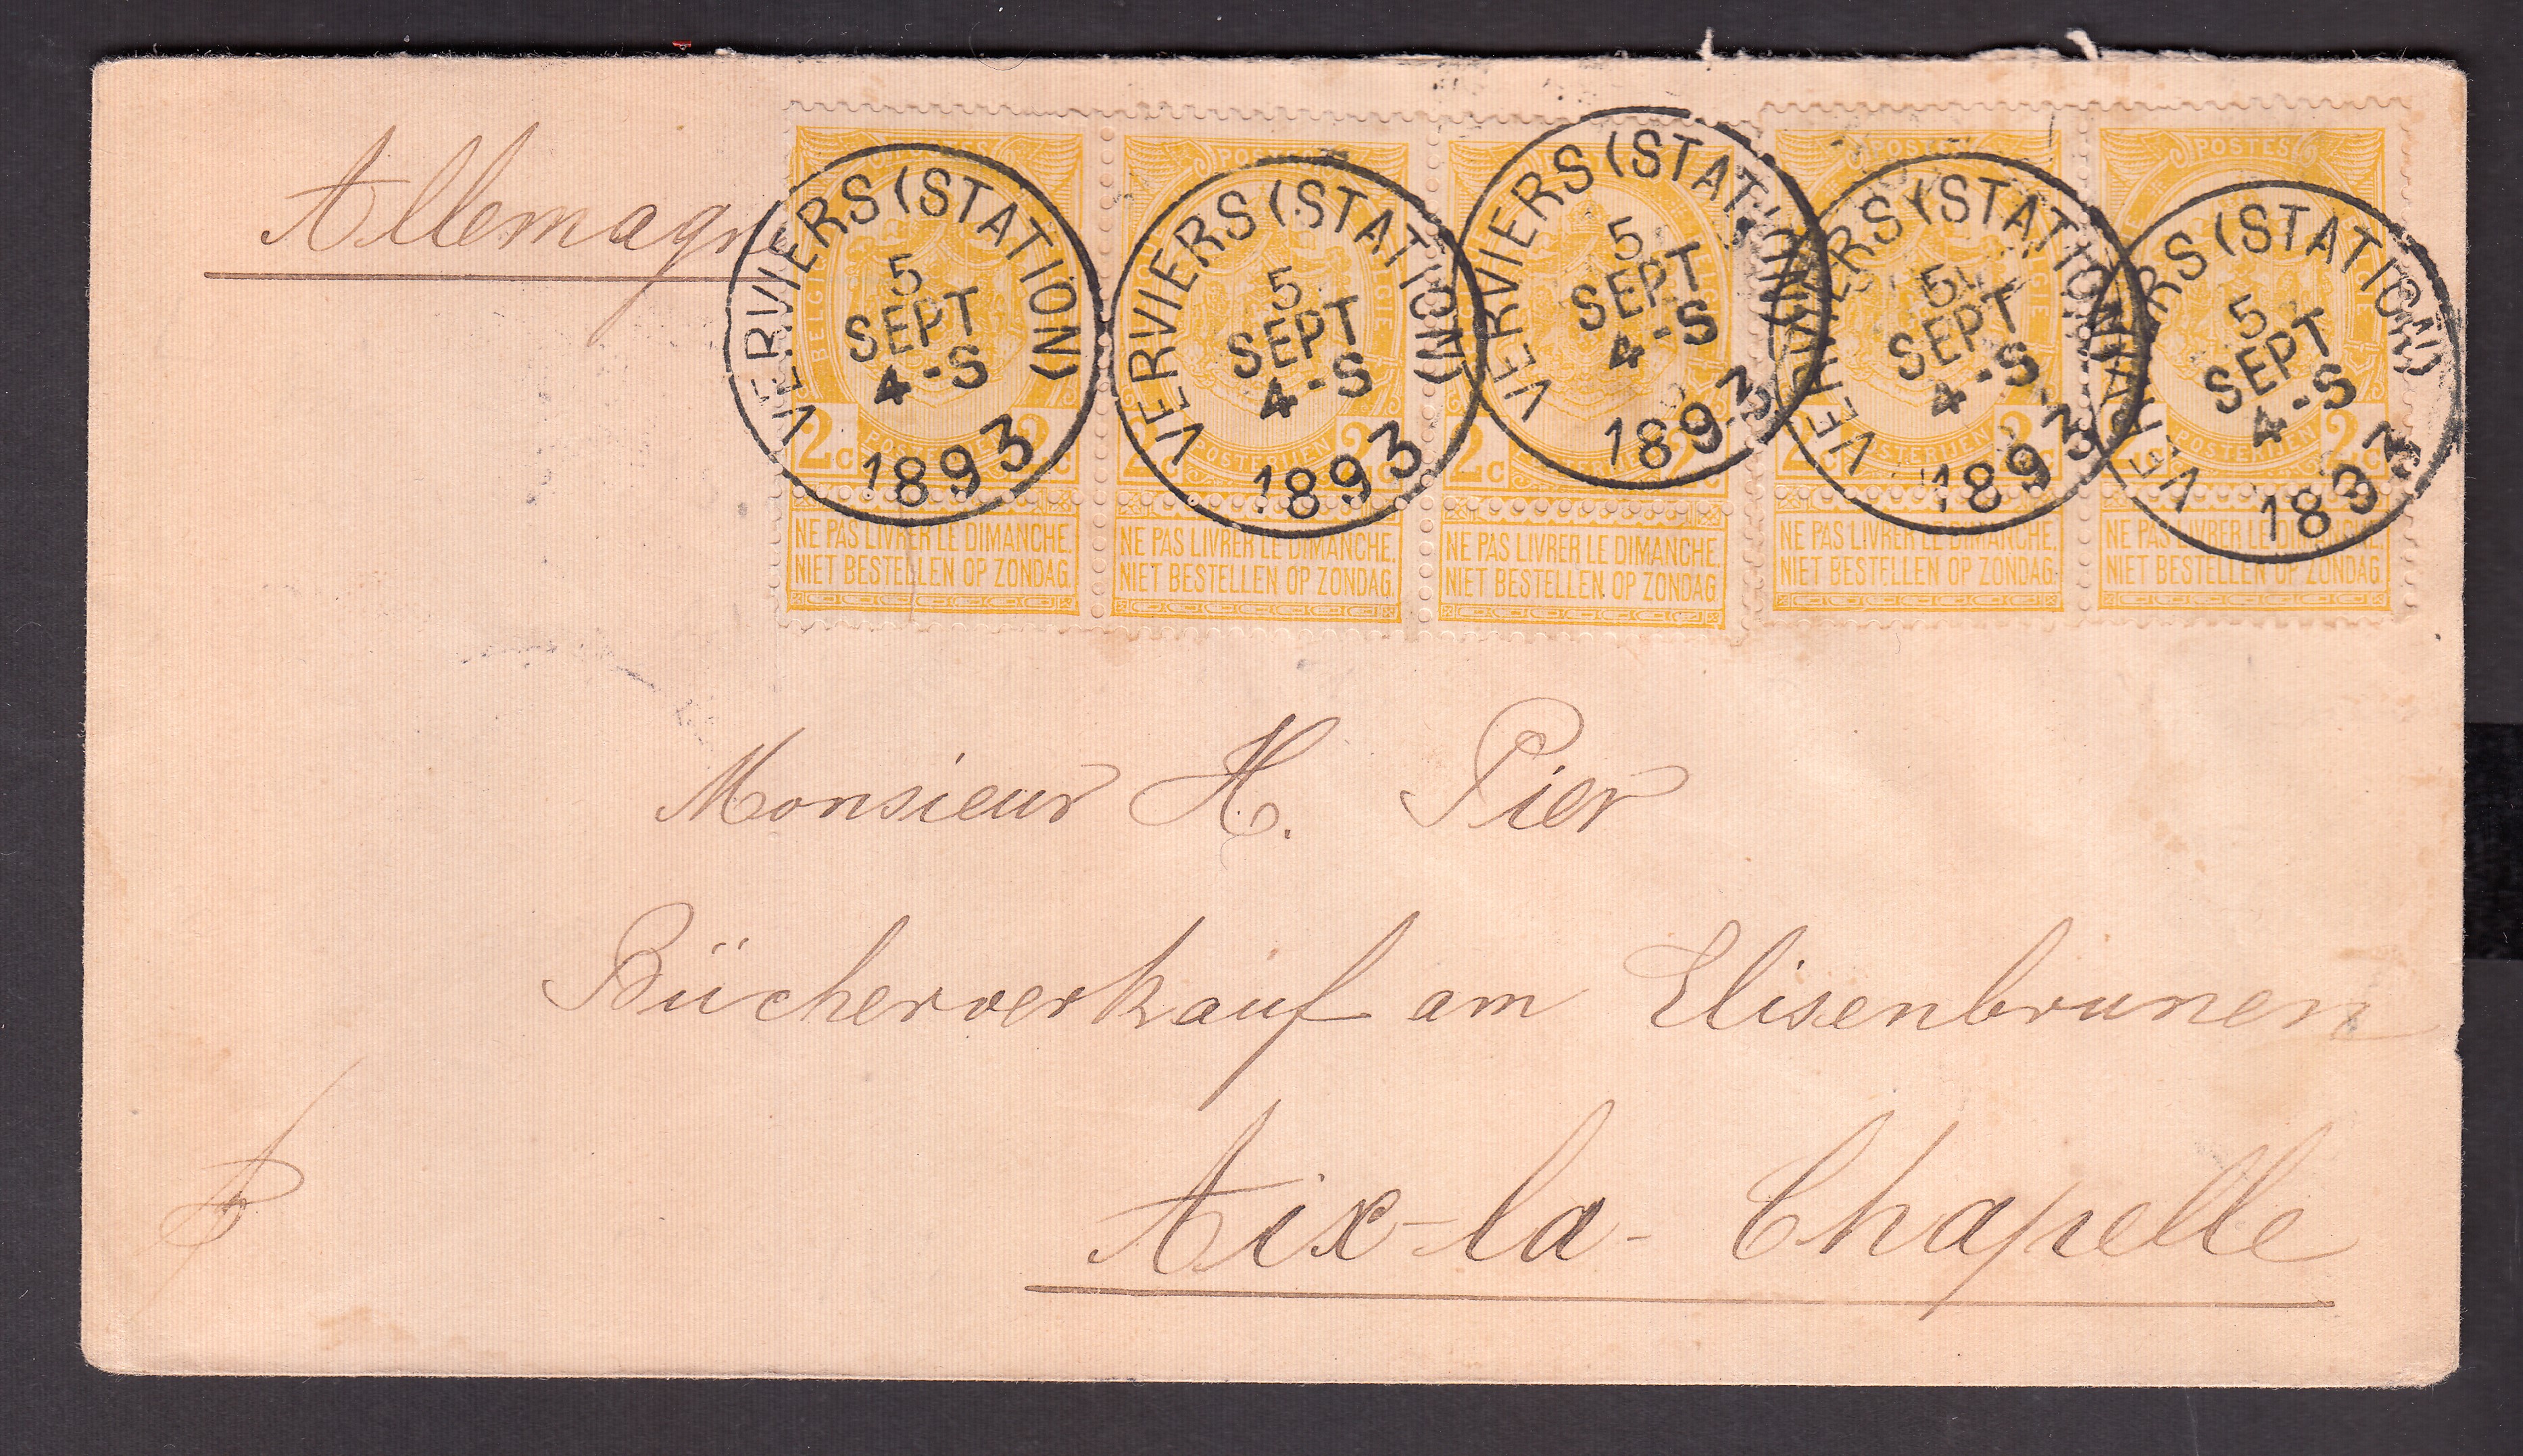 Allemagne
POSTES POSTES POSTES POSTES
BELGIQUE
VERVIERS (STATION) 5 SEPT 4-S 1893
VERVIERS (STATION) 5 SEPT 4-S 1893
VERVIERS (STATION) 5 SEPT 4-S 1893
VERVIERS (STATION) 5 SEPT 4-S 1893
VERVIERS (STATION) 5 SEPT 4-S 1893
2c POSTERIJEN 2c 2c POSTERIJEN 2c 2c POSTERIJEN 2c 2c POSTERIJEN 2c 2c POSTERIJEN 2c
NE PAS LIVRER LE DIMANCHE. NE PAS LIVRER LE DIMANCHE. NE PAS LIVRER LE DIMANCHE. NE PAS LIVRER LE DIMANCHE. NE PAS LIVRER LE DIMANCHE.
NIET BESTELLEN OP ZONDAG. NIET BESTELLEN OP ZONDAG. NIET BESTELLEN OP ZONDAG. NIET BESTELLEN OP ZONDAG. NIET BESTELLEN OP ZONDAG.
Monsieur H. Pier
Bücherverkauf am Elisenbrunen
Aix-la-Chapelle